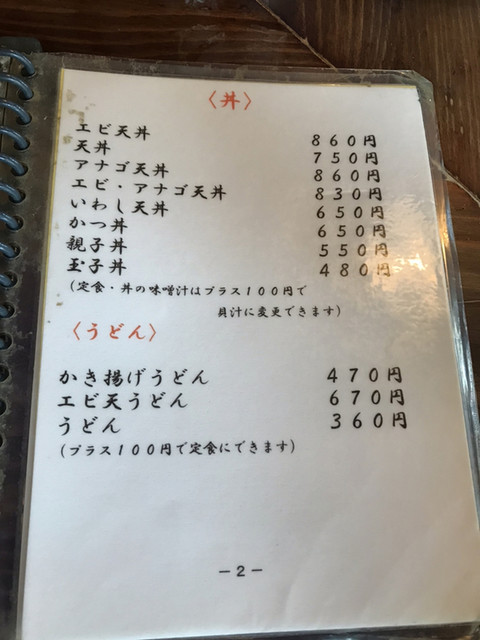 〈丼〉
エビ天丼 860円
天丼 750円
アナゴ天丼 860円
エビ・アナゴ天丼 830円
いわし天丼 650円
かつ丼 650円
親子丼 550円
玉子丼 480円
(定食・丼の味噌汁はプラス100円で
貝汁に変更できます)
〈うどん〉
かき揚げうどん 470円
エビ天うどん 670円
うどん 360円
(プラス100円で定食にできます)
－2－